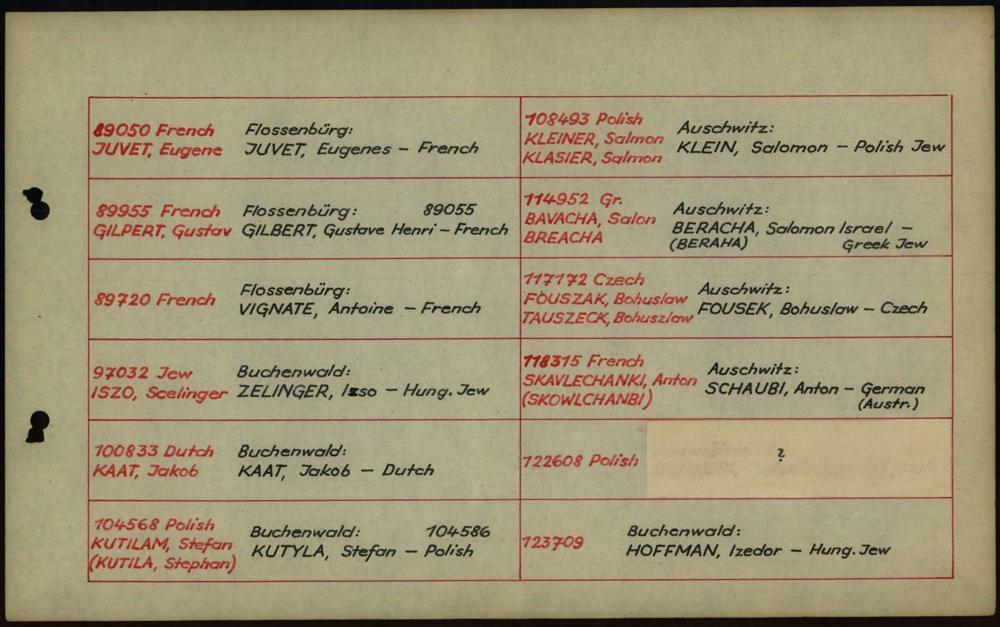 89050 French
JUVET, Eugene
Flossenbürg:
JUVET, Eugenes – French
89955 French
GILPERT, Gustav
Flossenbürg: 89055
GILBERT, Gustave Henri – French
89720 French
Flossenbürg:
VIGNATE, Antoine – French
97032 Jew
ISZO, Scelinger
Buchenwald:
ZELINGER, Izso – Hung. Jew
100833 Dutch
KAAT, Jakob
Buchenwald:
KAAT, Jakob – Dutch
104568 Polish
KUTILAM, Stefan
(KUTILA, Stephan)
Buchenwald: 104586
KUTYLA, Stefan – Polish
108493 Polish
KLEINER, Salmon
KLASIER, Salmon
Auschwitz:
KLEIN, Salomon – Polish Jew
114952 Gr.
BAVACHA, Salon
BREACHA
Auschwitz:
BERACHA, Salomon Israel –
(BERAHA) Greek Jew
117172 Czech
FOUSZAK, Bohuslaw
TAUSZECK, Bohuszlaw
Auschwitz:
FOUSEK, Bohuslaw – Czech
118315 French
SKAVLECHANKI, Anton
(SKOWLCHANBI)
Auschwitz:
SCHAUBI, Anton – German
(Austr.)
122608 Polish
?
123709
Buchenwald:
HOFFMAN, Izedor – Hung. Jew